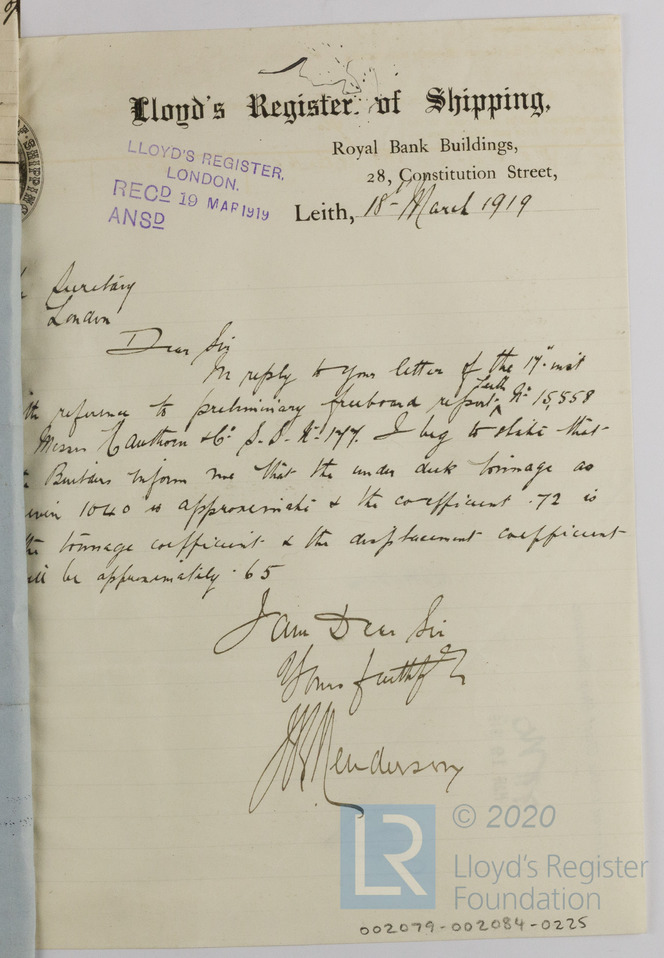 Lloyd's Register of Shipping,
Royal Bank Buildings,
28, Constitution Street,
Leith, 18th March 1919
LLOYD'S REGISTER,
LONDON.
RECD 19 MAR 1919
ANSD
SHIPPING
Secretary
London
Dear Sir
In reply to your letter of the 17th inst
reference to preliminary freeboard report Leith No 15,858
Messrs Hawthorn & Co S.S. No 177. I beg to state that
Builders inform me that the under deck tonnage as
1040 is approximate & the coefficient .72 is
the tonnage coefficient & the displacement coefficient
be approximately .65
I am Dear Sir
Yours faithfully
Henderson
© 2020
LR
Lloyd's Register
Foundation
002079-002084-0225